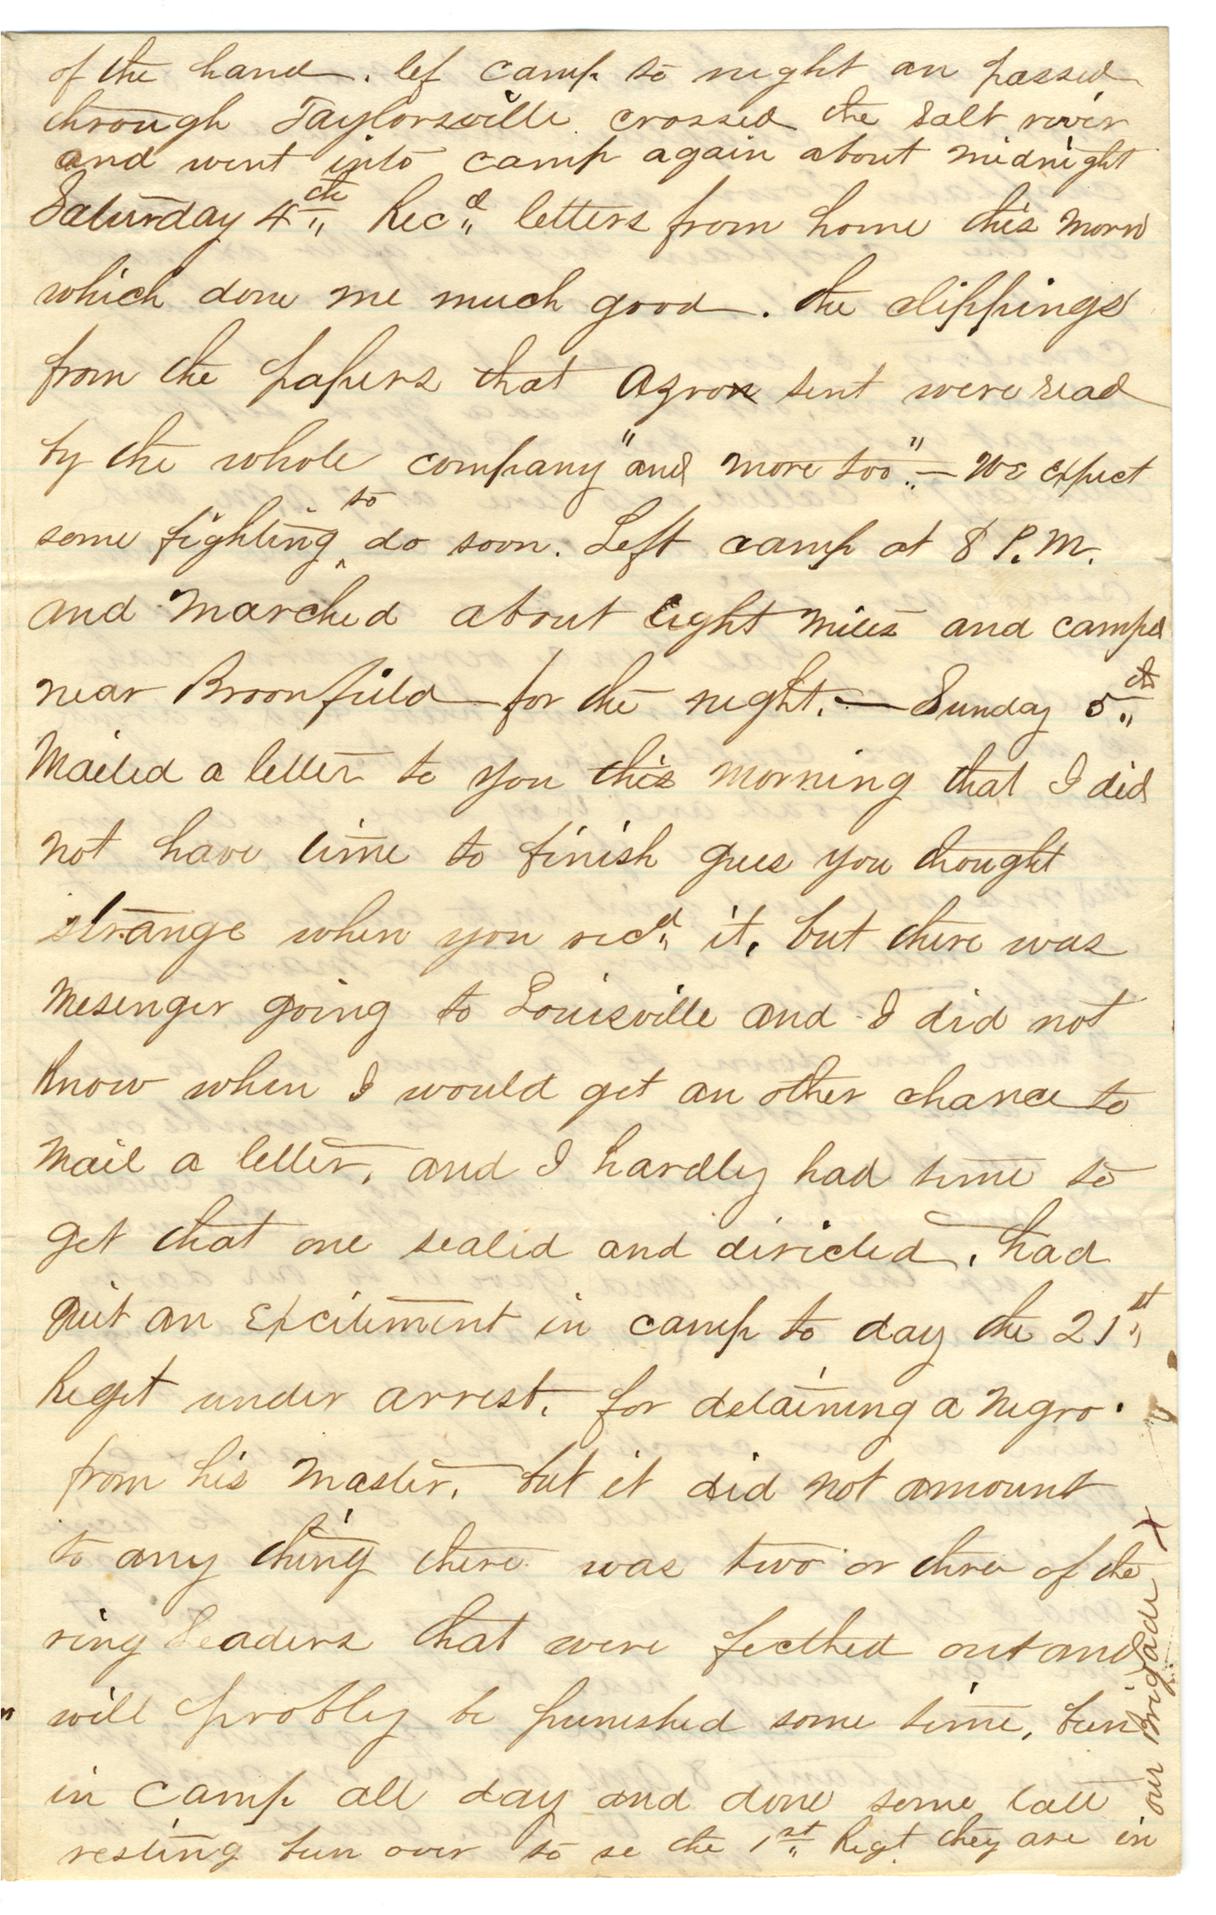 of the hand. lef camp to night an passed
through Taylorsville crossed the Salt river
and went into camp again about midnight
Saturday 4th Recd letters from home this morn
which done me much good. the clippings
from the papers that Azron sent were read
by the whole company "and more too". — We expect
some fighting to do soon. Left camp at 8 P.M.
and marched about Eight miles and camped
near Broomfield for the night. — Sunday 5th
Mailed a letter to you this morning that I did
not have time to finish gues you thought
strange when you recd it, but there was
mesenger going to Louisville and I did not
know when I would get an other chance to
mail a letter, and I hardly had time to
get that one sealed and divicted. had
quit an Excitement in camp to day the 21st
Regt under arrest. for detaining a negro.
from his master. but it did not amount
to any thing there was two or three of the
ring leaders that were fecthed out and
will probly be punished some time. bun
in camp all day and done some tall
resting bun over to se the 1st Regt. they are in
our Brigade X